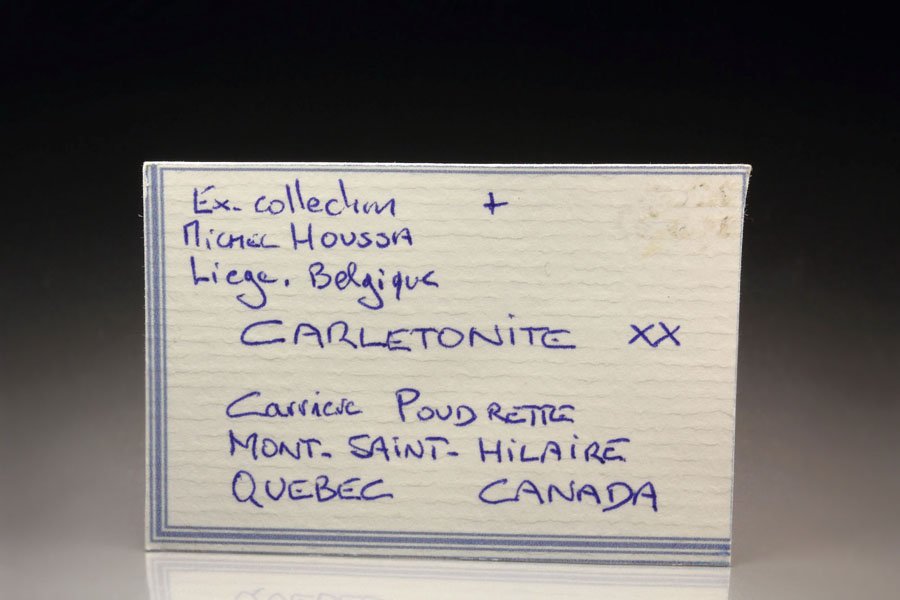 Ex-collection +
Michel Houssa
Liege. Belgique
CARLETONITE XX
Carriere POUDRETTE
MONT-SAINT-HILAIRE
QUEBEC CANADA